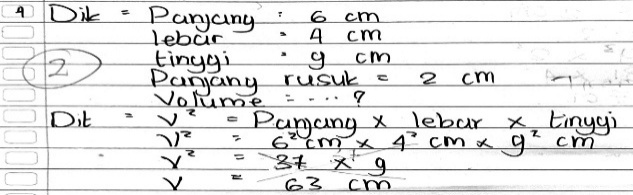 4 Dik = Panjang : 6 cm
lebar = 4 cm
tinggi = 9 cm
2
Panjang rusuk = 2 cm
Volume = .... ?
Dit = V² = Panjang x lebar x tinggi
V² = 6² cm x 4² cm x 9² cm
V² = 37 x 9
V = 63 cm